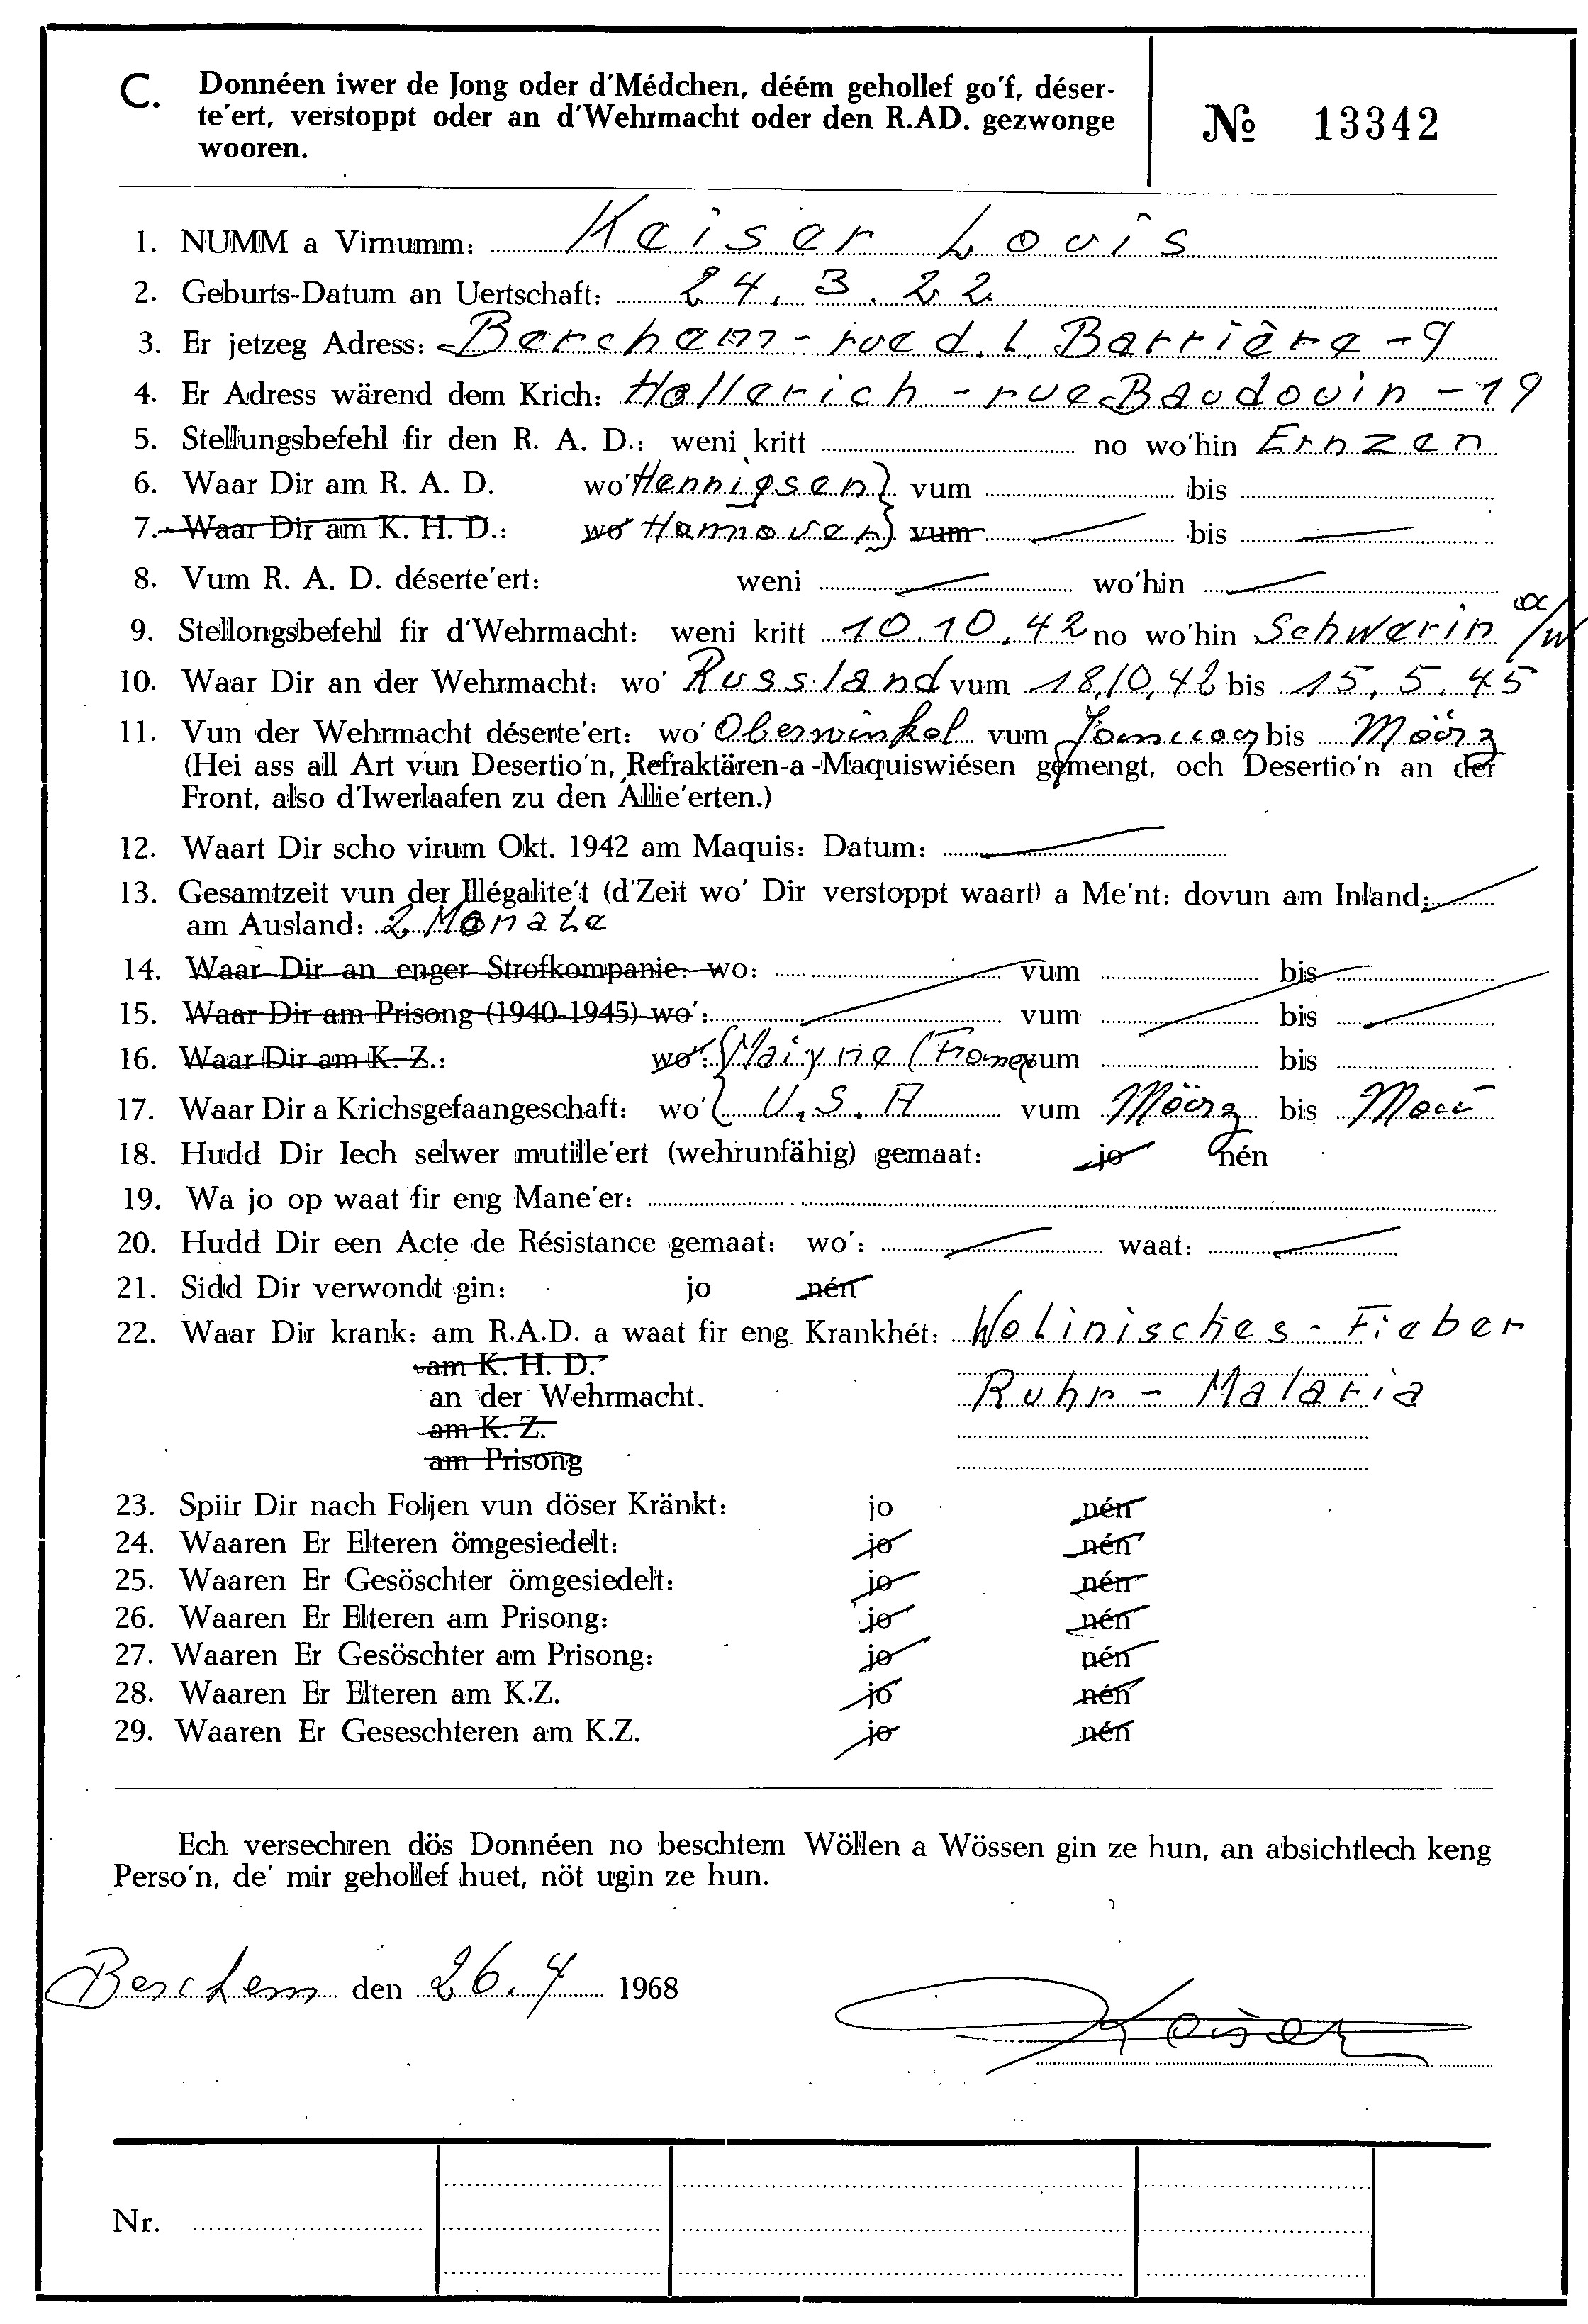 C. Donnéen iwer de Jong oder d'Médchen, déém gehollef go'f, déser-
te'ert, verstoppt oder an d'Wehrmacht oder den R.AD. gezwonge
wooren.
№ 13342
1. NUMM a Virnumm: Keiser Louis
2. Geburts-Datum an Uertschaft: 24. 3. 22
3. Er jetzeg Adress: Berchem - rue d. l. Barrière - 9
4. Er Adress wärend dem Krich: Hollerich - rue Baudouin - 19
5. Stellungsbefehl fir den R. A. D.: weni kritt no wo'hin Ernzen
6. Waar Dir am R. A. D. wo' Hennigsen } vum bis
7. Waar Dir am K. H. D.: wo' Hannover } vum bis
8. Vum R. A. D. déserte'ert: weni wo'hin
9. Stellongsbefehl fir d'Wehrmacht: weni kritt 10.10.42 no wo'hin Schwerin a/W
10. Waar Dir an der Wehrmacht: wo' Russland vum 18.10.42 bis 15. 5. 45
11. Vun der Wehrmacht déserte'ert: wo' Oberwinkel vum Januar bis März
(Hei ass all Art vun Desertio'n, Refraktären-a-Maquiswiésen gemengt, och Desertio'n an der
Front, also d'Iwerlaafen zu den Allie'erten.)
12. Waart Dir scho virum Okt. 1942 am Maquis: Datum:
13. Gesamtzeit vun der Illégalite't (d'Zeit wo' Dir verstoppt waart) a Me'nt: dovun am Inland:
am Ausland: 2 Monate
14. Waar Dir an enger Strofkompanie: wo: vum bis
15. Waar Dir am Prisong (1940-1945) wo': vum bis
16. Waar Dir am K. Z.: wo': { Maiyne ( vum bis
17. Waar Dir a Krichsgefaangeschaft: wo' { U.S.A vum März bis Mai
18. Hudd Dir Iech selwer mutille'ert (wehrunfähig) gemaat: jo nén
19. Wa jo op waat fir eng Mane'er:
20. Hudd Dir een Acte de Résistance gemaat: wo': waat:
21. Sidd Dir verwondt gin: jo nén
22. Waar Dir krank: am R.A.D. a waat fir eng Krankhét: Wolinisches - Fieber
am K. H. D.
an der Wehrmacht. Ruhr - Malaria
am K. Z.
am Prisong
23. Spiir Dir nach Foljen vun döser Kränkt: jo nén
24. Waaren Er Elteren ömgesiedelt: jo nén
25. Waaren Er Gesöschter ömgesiedelt: jo nén
26. Waaren Er Elteren am Prisong: jo nén
27. Waaren Er Gesöschter am Prisong: jo nén
28. Waaren Er Elteren am K.Z. jo nén
29. Waaren Er Geseschteren am K.Z. jo nén
Ech versechren dös Donnéen no beschtem Wöllen a Wössen gin ze hun, an absichtlech keng
Perso'n, de' mir gehollef huet, nöt ugin ze hun.
Berchem den 26. 4 1968
Keiser
Nr.